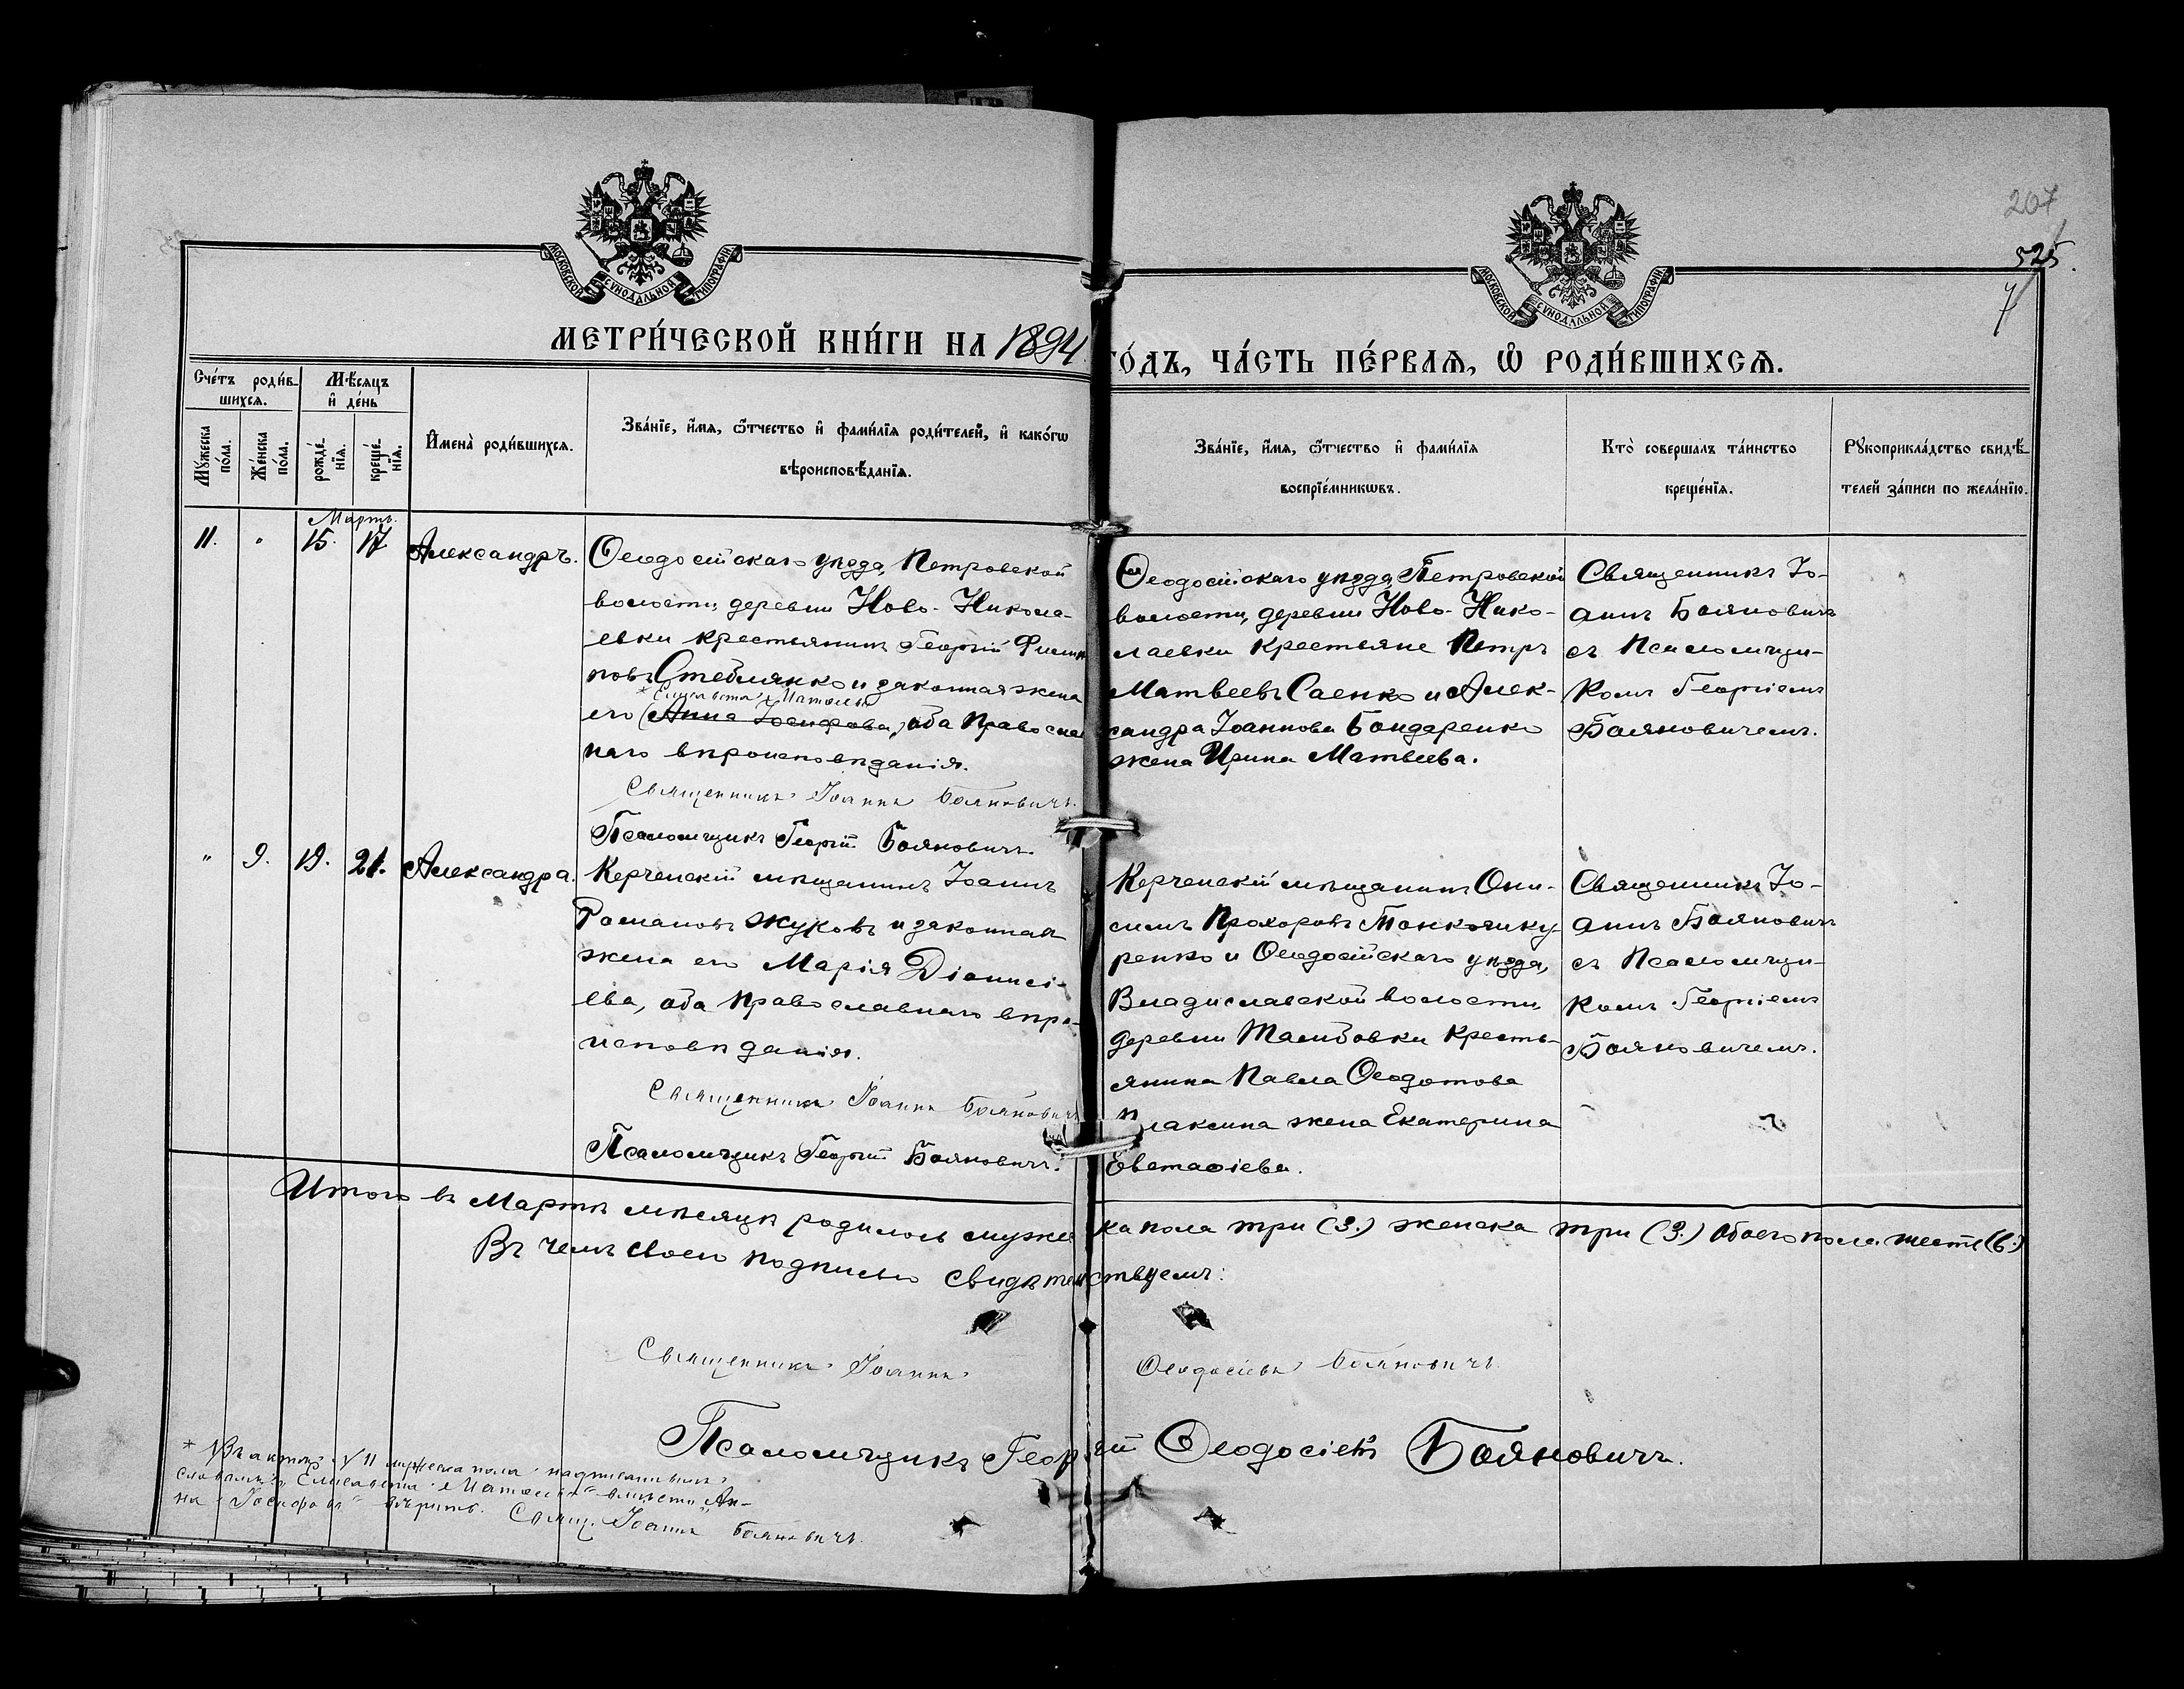 207
525.
7
МОСКОВСКОЙ СѴНОДАЛЬНОЙ ТИПОГРАФІИ
МОСКОВСКОЙ СѴНОДАЛЬНОЙ ТИПОГРАФІИ
МЕТРИ́ЧЕСКОЙ КНИ́ГИ НА 1894 ГО́ДЪ, ЧА́СТЬ ПЕ́РВАЯ, Ѡ҆ РОДИ́ВШИХСЯ.
Сче́тъ роди́в-
шихся.
Мѣ́сяцъ
и҆ де́нь
Мꙋ́жеска по́ла.
Же́нска по́ла.
рожде́нїя.
креще́нїя.
И҆мена̀ роди́вшихся.
Зва́нїе, и҆́мя, ѻ҆́тчество и҆ фами́лїя роди́телей, и҆ како́гѡ
вѣроисповѣ́данїя.
Зва́нїе, и҆́мя, ѻ҆́тчество и҆ фами́лїя
воспрїе́мникѡвъ.
Кто̀ соверша́лъ та́инство
креще́нїя.
Рꙋкоприкла́дство свидѣ́-
телей за́писи по жела́нїю.
Мартъ.
11. " 15. 17 Александръ.
Ѳеодосійскаго уѣзда, Петровской
волости, деревни Ново-Никола-
евки крестьянинъ Георгій Филип
повъ Стеблянко и законная жена
* Елисавета
его (Анна Іосифова,) оба Православ
наго вѣроисповѣданія.
Священникъ Іоаннъ Бояновичъ.
Псаломщикъ Георгій Бояновичъ.
Ѳеодосійскаго уѣзда, Петровской
волости, деревни Ново-Нико-
лаевки крестьяне Петръ
Матвеевъ Саенко и Алек-
сандра Іоаннова Бондаренко
жена Ирина Матвеева.
Священникъ Іо-
аннъ Бояновичъ
съ Псаломщи-
комъ Георгіемъ
Бояновичемъ.
" 9. 19. 21. Александра.
Керченскій мѣщанинъ Іоаннъ
Романовъ Жуковъ и законная
жена его Марія Діонисі-
ева, оба Православнаго вѣро-
исповѣданія.
Священникъ Іоаннъ Бояновичъ
Псаломщикъ Георгій Бояновичъ.
Керченскій мѣщанинъ Они-
симъ Прохоровъ
ренко и Ѳеодосійскаго уѣзда,
Владиславской волости,
деревни Тамбовки кресть-
янина Павла Ѳеодотова
Плаксина жена Екатерина
Евстафіева.
Священникъ Іо-
аннъ Бояновичъ
съ Псаломщи-
комъ Георгіемъ
Бояновичемъ.
Итого въ Мартѣ мѣсяцѣ родилось мужеска пола три (3.) женска три (3.) Обоего пола шесть (6.)
Въ чемъ своею подписью свидѣтельствуемъ:
Священникъ Іоаннъ Ѳеодосіевъ Бояновичъ.
Псаломщикъ Георгій Ѳеодосіевъ Бояновичъ.
* Въ актѣ № 11 мужеска пола надписаннымъ
словамъ „Елисавета вмѣсто „Ан-
на Іосифова" вѣрить. Свящ. Іоаннъ Бояновичъ.